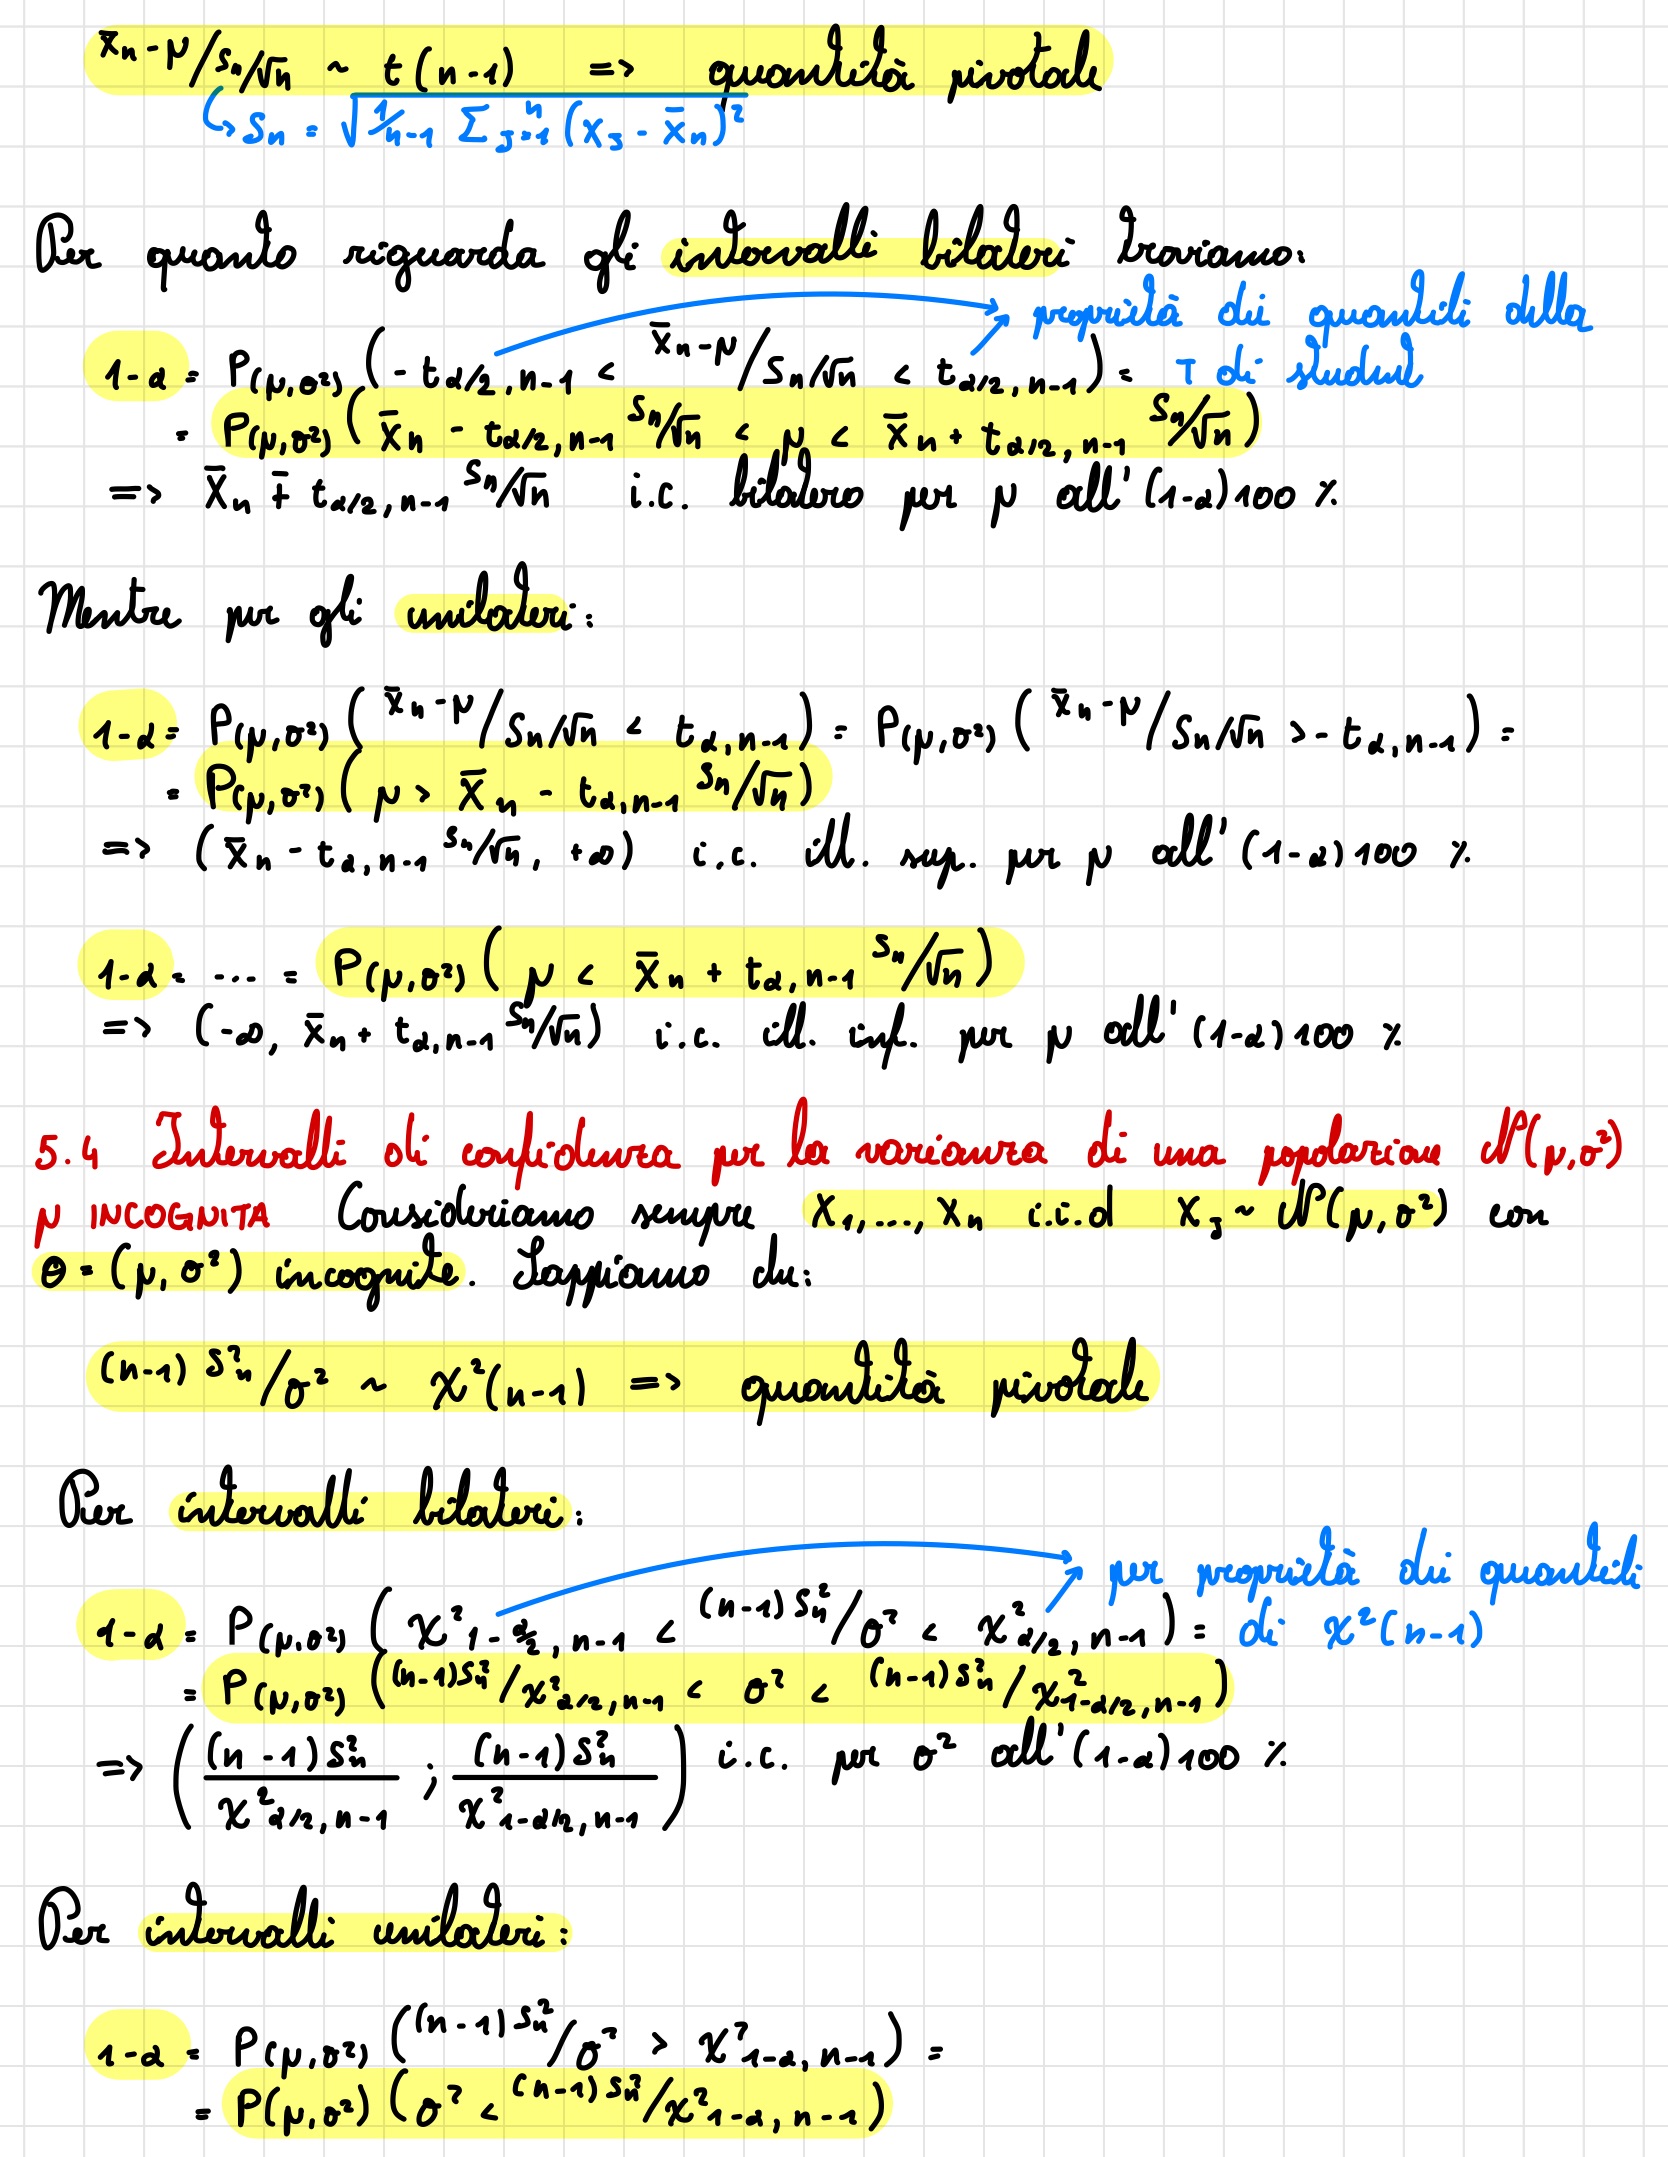 x̄n - μ / Sn/√n ~ t(n-1) => quantità pivotale
↳ Sn = √1/n-1 Σ j=1 n (xj - x̄n)²
Per quanto riguarda gli intervalli bilateri troviamo:
→ proprietà dei quantili della
1-α = P(μ,σ²) (-tα/2,n-1 < x̄n-μ / Sn/√n < tα/2,n-1) = T di student
= P(μ,σ²) (x̄n - tα/2,n-1 Sn/√n < μ < x̄n + tα/2,n-1 Sn/√n)
=> x̄n ∓ tα/2,n-1 Sn/√n i.c. bilatero per μ all'(1-α)100 %
Mentre per gli unilateri:
1-α = P(μ,σ²) (x̄n-μ / Sn/√n < tα,n-1) = P(μ,σ²) (x̄n-μ / Sn/√n > -tα,n-1) =
= P(μ,σ²) (μ > x̄n - tα,n-1 Sn/√n)
=> (x̄n - tα,n-1 Sn/√n, +∞) i.c. ill. sup. per μ all'(1-α)100 %
1-α = ... = P(μ,σ²) (μ < x̄n + tα,n-1 Sn/√n)
=> (-∞, x̄n + tα,n-1 Sn/√n) i.c. ill. inf. per μ all'(1-α)100 %
5.4 Intervalli di confidenza per la varianza di una popolazione N(μ,σ²)
μ INCOGNITA Consideriamo sempre X1,...,Xn i.i.d Xj ~ N(μ,σ²) con
θ = (μ, σ²) incognite. Sappiamo che:
(n-1) S²n / σ² ~ χ²(n-1) => quantità pivotale
Per intervalli bilateri:
→ per proprietà dei quantili
1-α = P(μ,σ²) (χ²1-α/2,n-1 < (n-1)S²n / σ² < χ²α/2,n-1) = di χ²(n-1)
= P(μ,σ²) ((n-1)S²n / χ²α/2,n-1 < σ² < (n-1)S²n / χ²1-α/2,n-1)
=> ((n-1)S²n / χ²α/2,n-1 ; (n-1)S²n / χ²1-α/2,n-1) i.c. per σ² all'(1-α)100 %
Per intervalli unilateri:
1-α = P(μ,σ²) ((n-1)S²n / σ² > χ²1-α,n-1) =
= P(μ,σ²) (σ² < (n-1)S²n / χ²1-α,n-1)